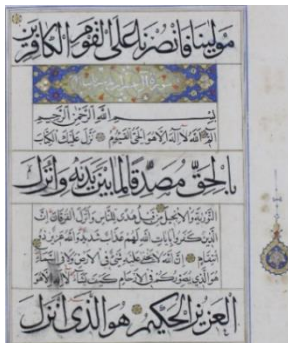 مولينا فانصرنا على القوم الكافرين
سورة آل عمران
بسم الله الرحمن الرحيم
الم الله لا اله الا هو الحي القيوم نزل عليك الكتاب
بالحق مصدقا لما بين يديه وانزل
التورية والانجيل من قبل هدى للناس وانزل الفرقان ان
الذين كفروا بايات الله لهم عذاب شديد والله عزيز ذو
انتقام ان الله لا يخفى عليه شيء في الارض ولا في السماء
هو الذي يصوركم في الارحام كيف يشاء لا اله الا هو
العزيز الحكيم هو الذي انزل